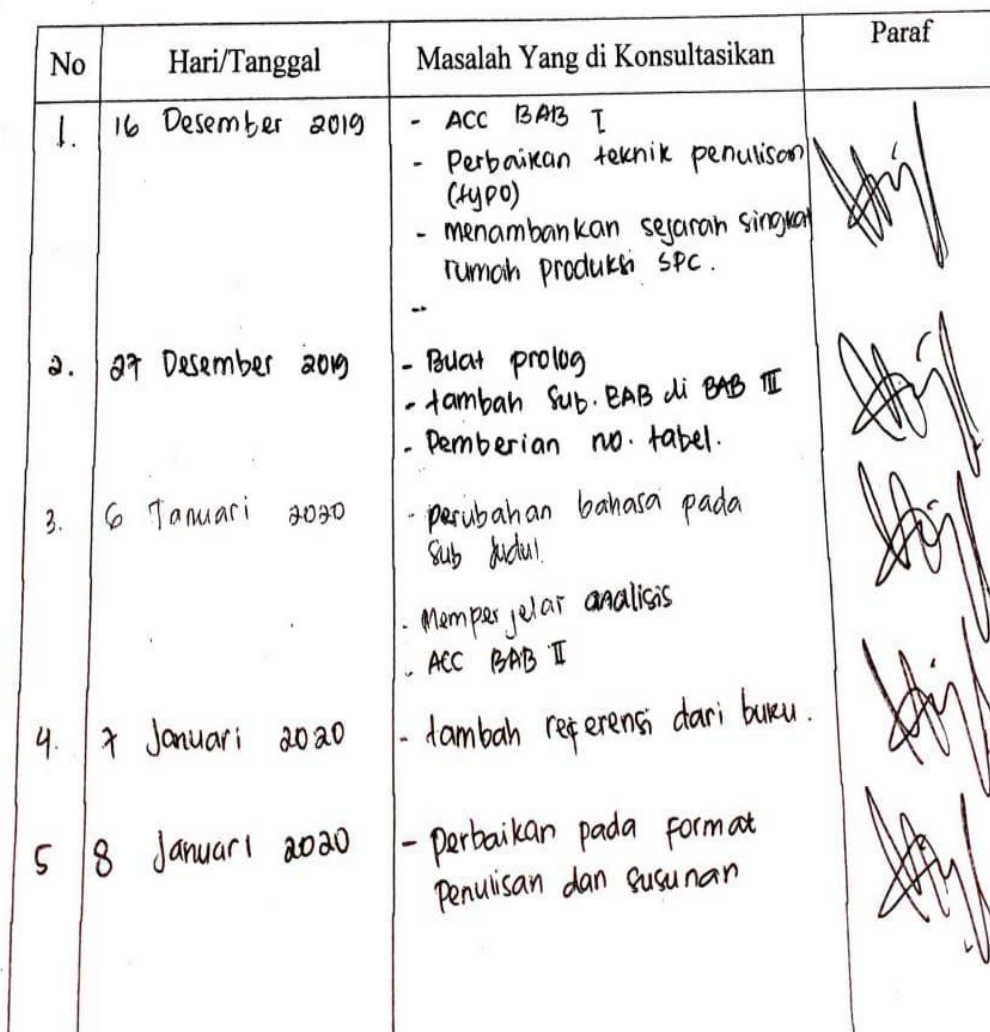 No Hari/Tanggal Masalah Yang di Konsultasikan Paraf
1. 16 Desember 2019 - ACC BAB I
- Perbaikan teknik penulisan
(typo)
- menambahkan sejarah singkat
rumah produksi SPC.
2. 27 Desember 2019 - Buat prolog
- tambah Sub. BAB di BAB III
- Pemberian no. tabel.
3. 6 Januari 2020 - perubahan bahasa pada
sub judul.
- Memperjelas analisis
- ACC BAB II
4. 7 Januari 2020 - tambah referensi dari buku.
5 8 Januari 2020 - perbaikan pada format
penulisan dan susunan